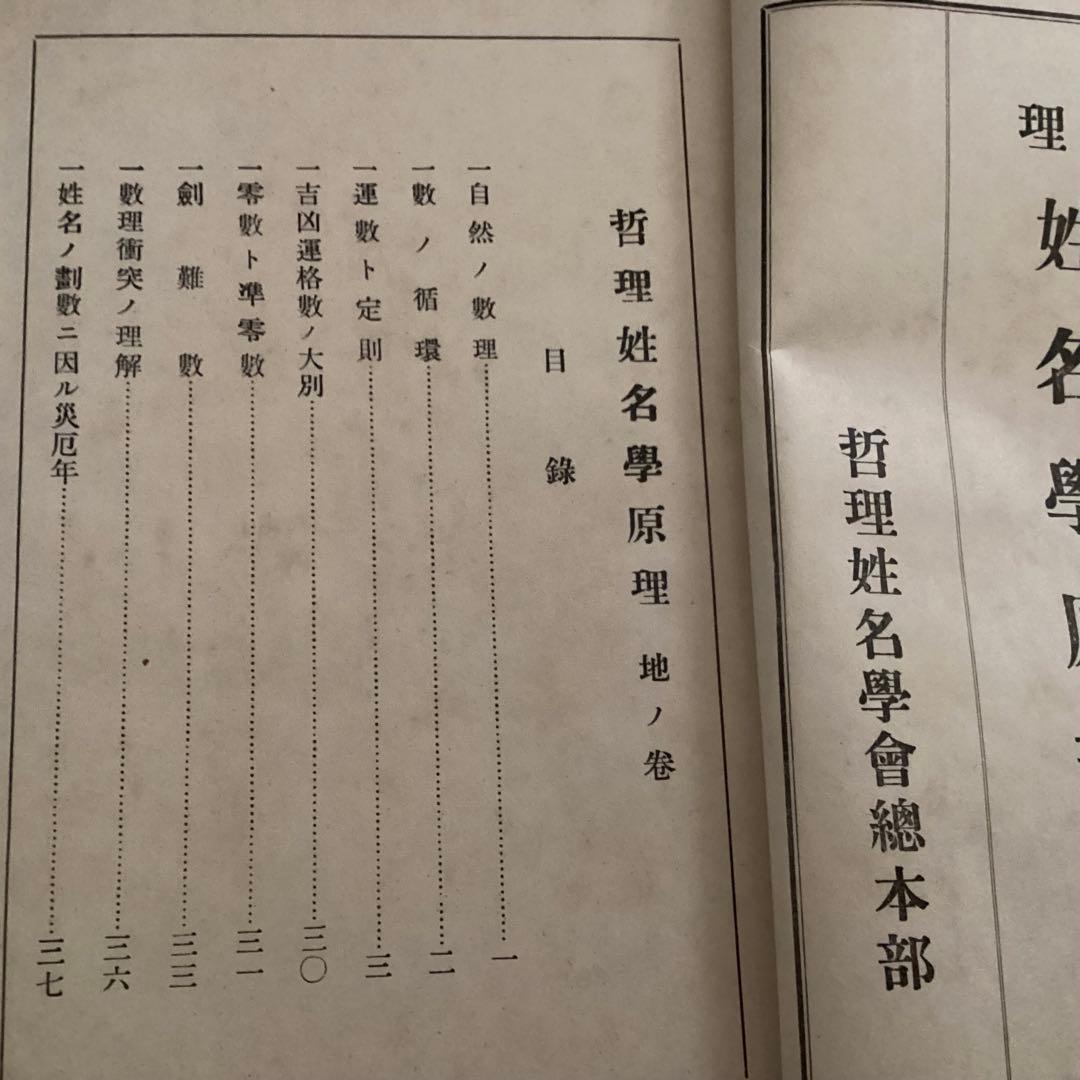 理姓名學原
哲理姓名學會總本部
哲理姓名學原理 地ノ卷
目錄
一自然ノ數理……一
一數ノ循環……二
一運數ト定則……三
一吉凶運格數ノ大別……三〇
一零數ト準零數……三一
一劍難數……三三
一數理衝突ノ理解……三六
一姓名ノ劃數ニ因ル災厄年……三七